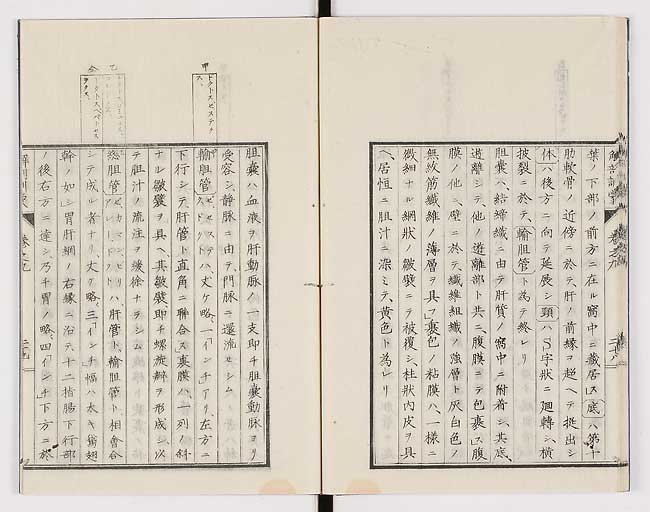 葉ノ下部ノ前方ニ在ル窩中ニ藏居ス」底ハ第十
肋軟骨ノ近傍ニ於テ肝ノ前緣ヲ超ヘテ挺出シ
体ハ後方ニ向テ延展シ頸ハS字狀ニ廻轉シ横
披裂ニ於テ輸胆管ト為テ終レリ
胆囊ハ結締織ニ由テ肝質ノ窩中ニ附着シ其底
遊離シテ他ノ遊離部ト共ニ腹膜ニテ包裹ス」腹
膜ノ他ニ壁ニ於テ纎維組織ノ強層ト灰白色ノ
無紋筋纎維ノ薄層ヲ具フ」裏包ノ粘膜ハ一樣ニ
微細ナル網狀ノ皺襞ニテ被覆シ柱狀內皮ヲ具
ヘ居恒ニ胆汁ニ染ミテ黄色ト為レリ
胆囊ハ血液ヲ肝動脈ノ一支即チ胆囊動脈ヨリ
受容シ靜脈ニ由テ門脈ニ還流セシム
輸胆管
ハ丈ケ略一「インチ」アリ左方ニ
下行シテ肝管ト直角ニ聯合ス」裏膜ハ一列ノ斜
ナル皺襞ヲ具ヘ其皺襞即チ螺旋瓣ヲ形成シ以
テ胆汁ノ流注ヲ緩徐ナラシム
總胆管
ハ肝管ト輸胆管ト相會合
シテ成ル者ナリ丈ケ略三「インチ」幅ハ太キ鵞翅
幹ノ如シ」胃肝網ノ右緣ニ沿テ十二指腸下行部
ノ後右方ニ達シ乃チ胃ノ略四「インチ」下方ニ於
甲
乙